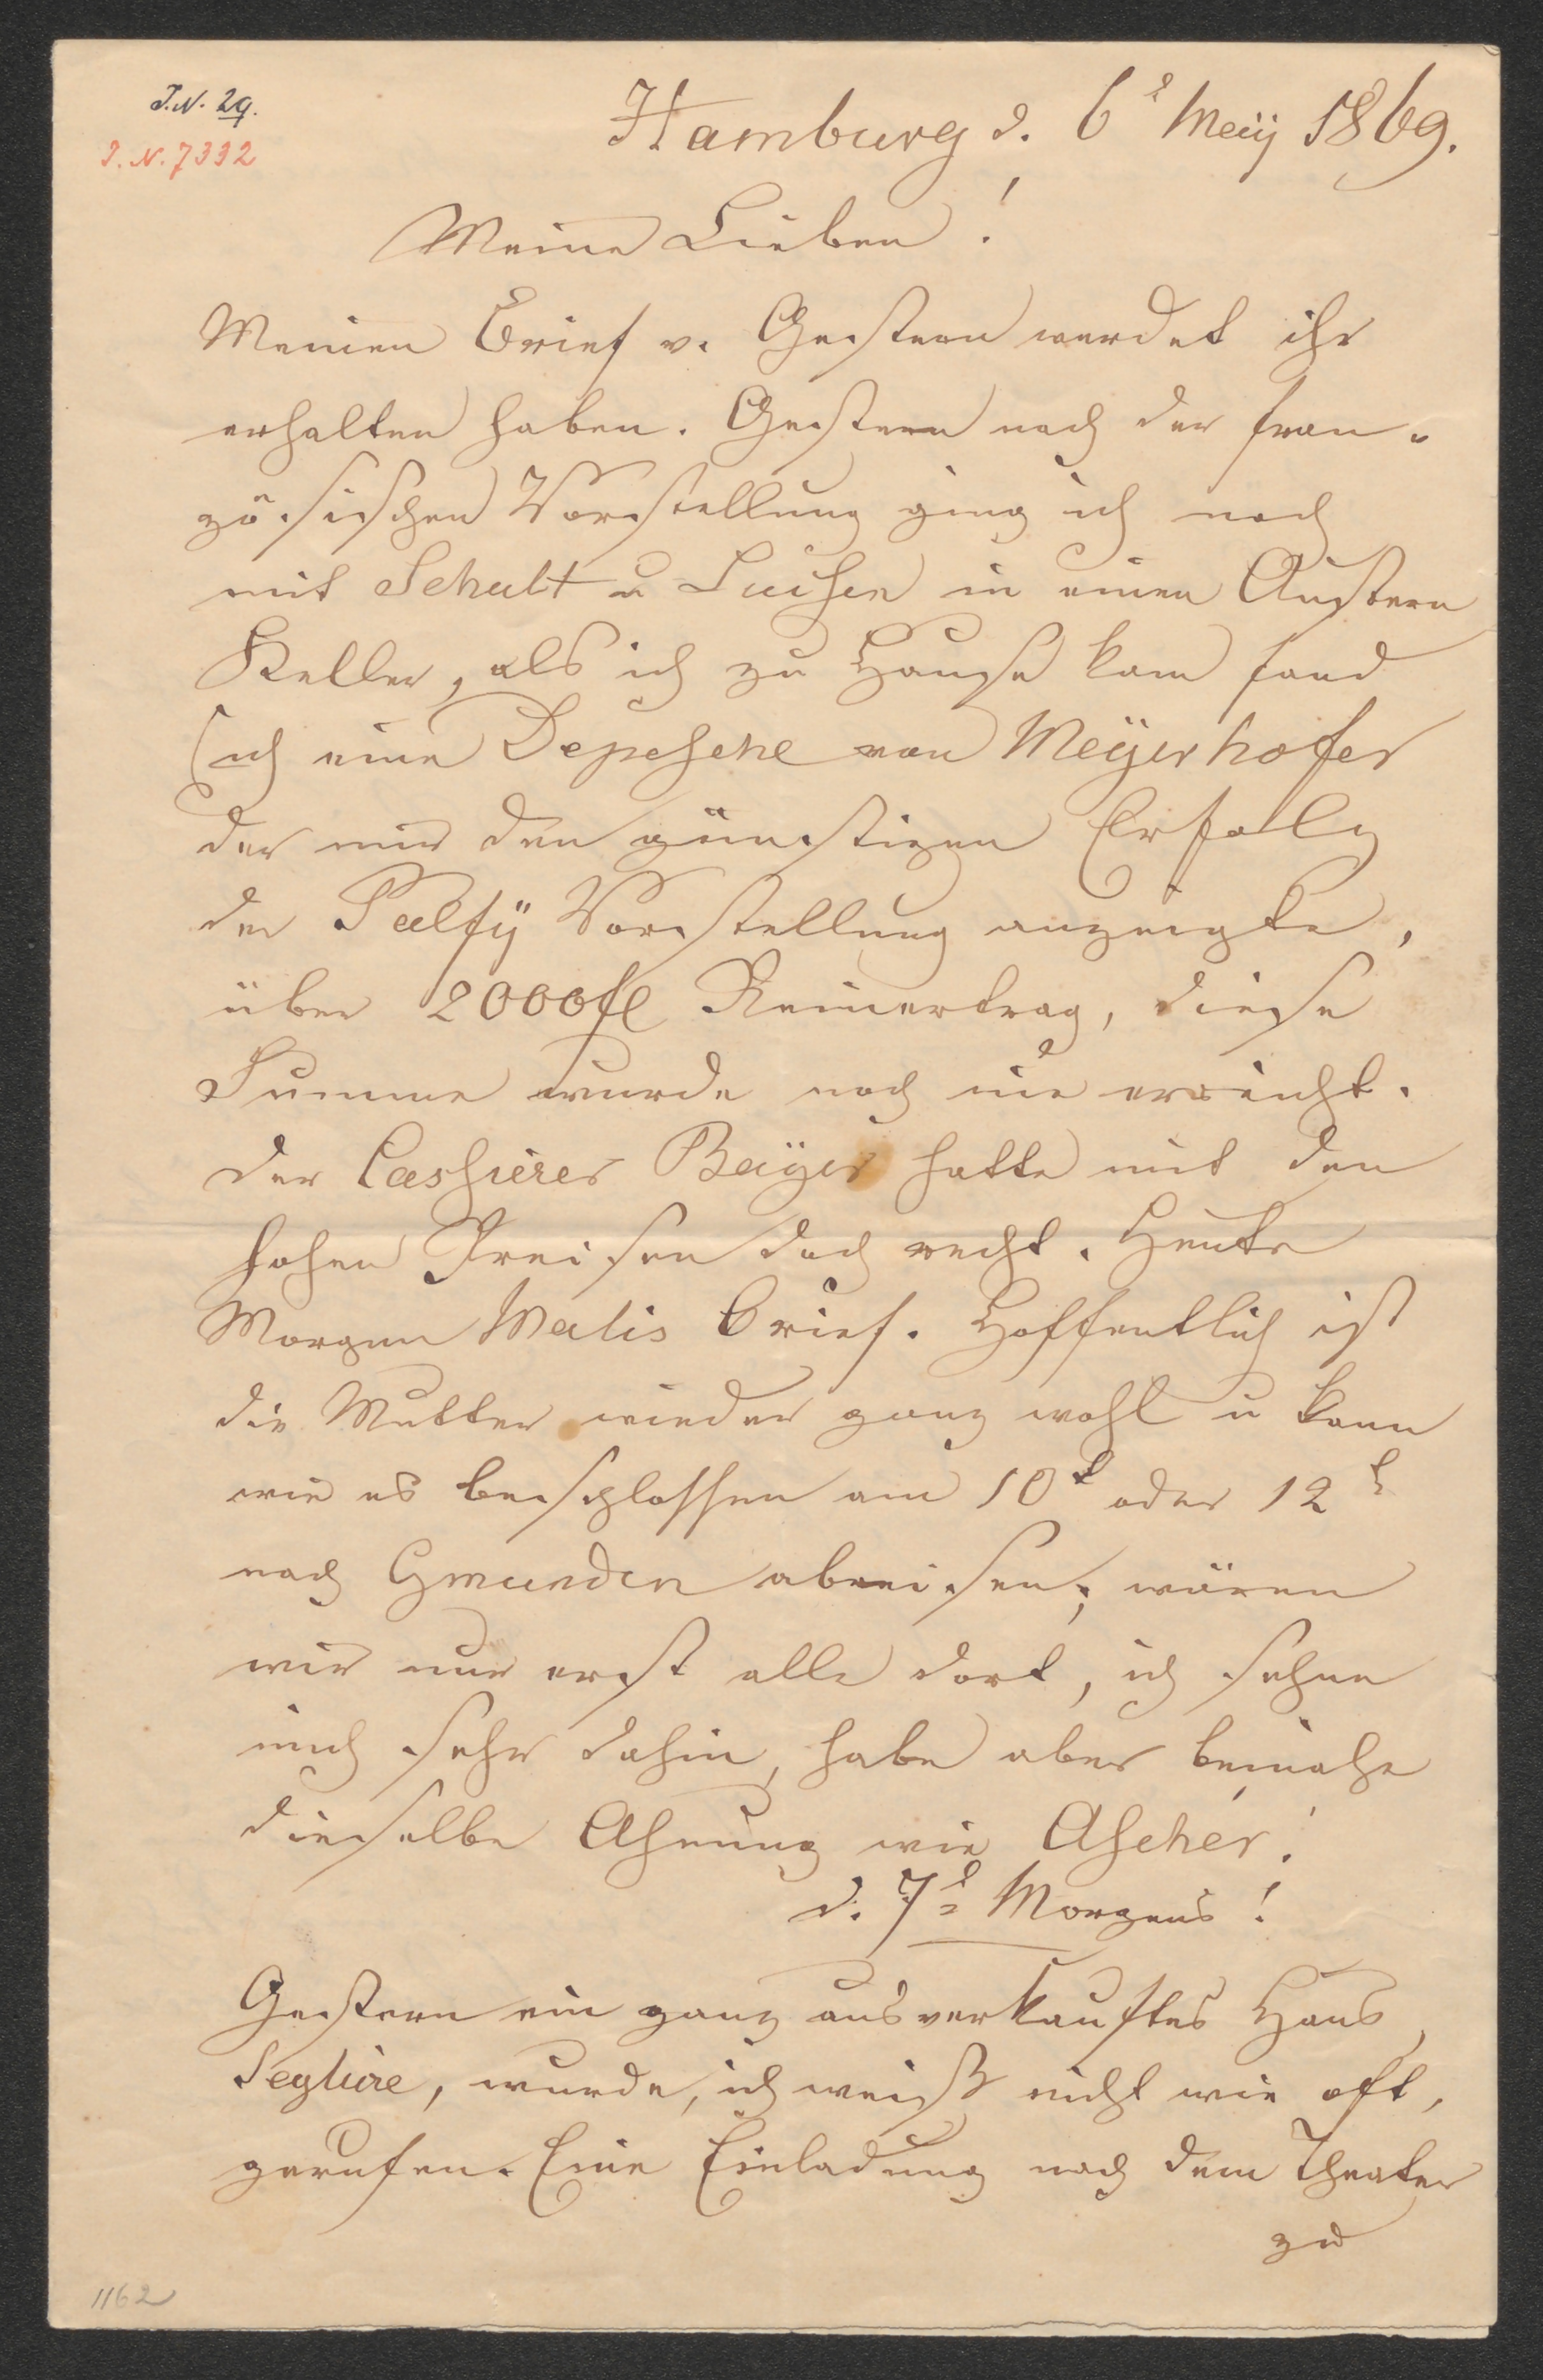 I.N. 29.
I.N. 7332
Hamburg d. 6t Maÿ 1869.
Meine Lieben!
Meinen Brief v. Gestern werdet ihr
erhalten haben. Gestern nach der fran-
zösischen Vorstellung ging ich noch
mit Schult u Luisen in einen Austern
Keller, als ich zu Hause kam fand
ich eine Depesche von Meÿerhofer
der mir den günstigen Erfolg
der Palfÿ Vorstellung anzeigte,
über 2000fl Reinertrag, diese
Summe wurde noch nie erreicht.
der Cassierer Baÿer hatte mit den
hohen Preisen doch recht. Heute
Morgen Malis Brief. Hoffentlich ist
die Mutter wieder ganz wohl u kann
wie es beschlossen am 10t oder 12t
nach Gmunden abreisen; wären
wir nur erst alle dort, ich sehne
mich sehr dahin, habe aber beinahe
dieselbe Ahnung wie Ascher!
d. 7t Morgens!
Gestern ein ganz ausverkauftes Haus,
wurde, ich weiß nicht wie oft,
gerufen. Eine Einladung nach dem Theater
zu
1162